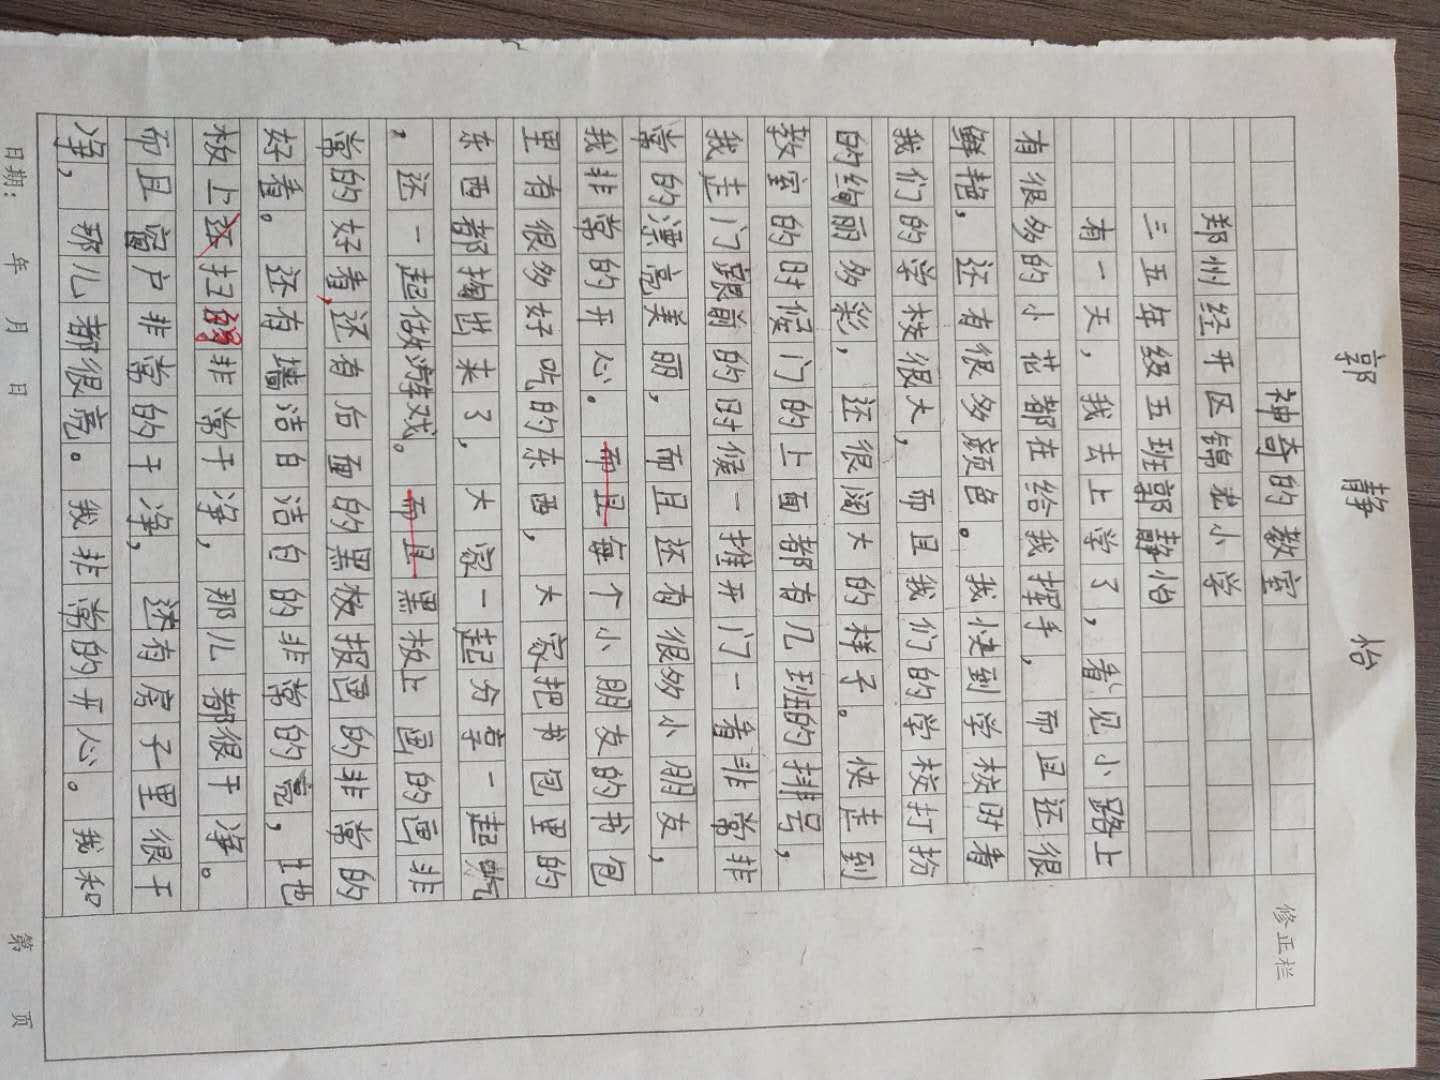 郭静怡
神奇的教室
郑州经开区锦龙小学
三五年级五班郭静怡
有一天，我去上学了，看见小路上
有很多的小花都在给我挥手，而且还很
鲜艳，还有很多颜色。我快到学校时看
我们的学校很大，而且我们的学校打扮
的绚丽多彩，还很阔大的样子。快走到
教室的时候门的上面都有几班的排号，
我走门跟前的时候一推开门一看非常非
常的漂亮美丽，而且还有很多小朋友，
我非常的开心。而且每个小朋友的书包
里有很多好吃的东西，大家把书包里的
东西都掏出来了，大家一起分享一起吃
，还一起做游戏。而且黑板上画的画非
常的好看，还有后面的黑板报画的非常的
好看。还有墙洁白洁白的非常的亮，地
板上还扫的非常干净，那儿都很干净。
而且窗户非常的干净，还有房子里很干
净，那儿都很亮。我非常的开心。我和
修正栏
日期： 年 月 日 第 页